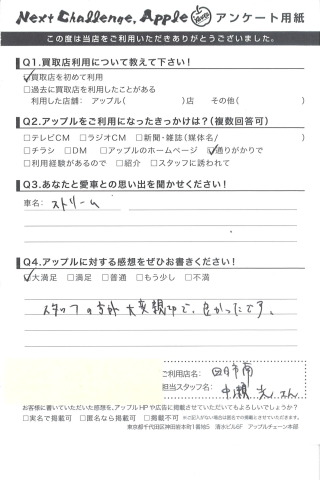 Next Challenge, Apple アンケート用紙
この度は当店をご利用いただきありがとうございました。
Q1.買取店利用について教えて下さい!
☑買取店を初めて利用
□過去に買取店を利用したことがある
利用した店舗: アップル( )店 その他( )
Q2.アップルをご利用になったきっかけは?(複数回答可)
□テレビCM □ラジオCM □新聞・雑誌(媒体名/ )
□チラシ □DM □アップルのホームページ ☑通りがかりで
□利用経験があるので □紹介 □スタッフに誘われて
Q3.あなたと愛車との思い出を聞かせください!
車名: ストリーム
Q4.アップルに対する感想をぜひお書きください!
☑大満足 □満足 □普通 □もう少し □不満
スタッフの方が大変親切で、良かったです。
ご利用店名: 四日市南
担当スタッフ名: 中瀬 さん
お客様に書いていただいた感想を、アップルHPや広告に掲載させていただいてもよろしいでしょうか?
□実名で掲載可 □匿名なら掲載可 □掲載不可 ※ご記入がない場合は匿名での掲載とさせていただきます。
東京都千代田区神田岩本町1番地5 清水ビル6F アップルチェーン本部